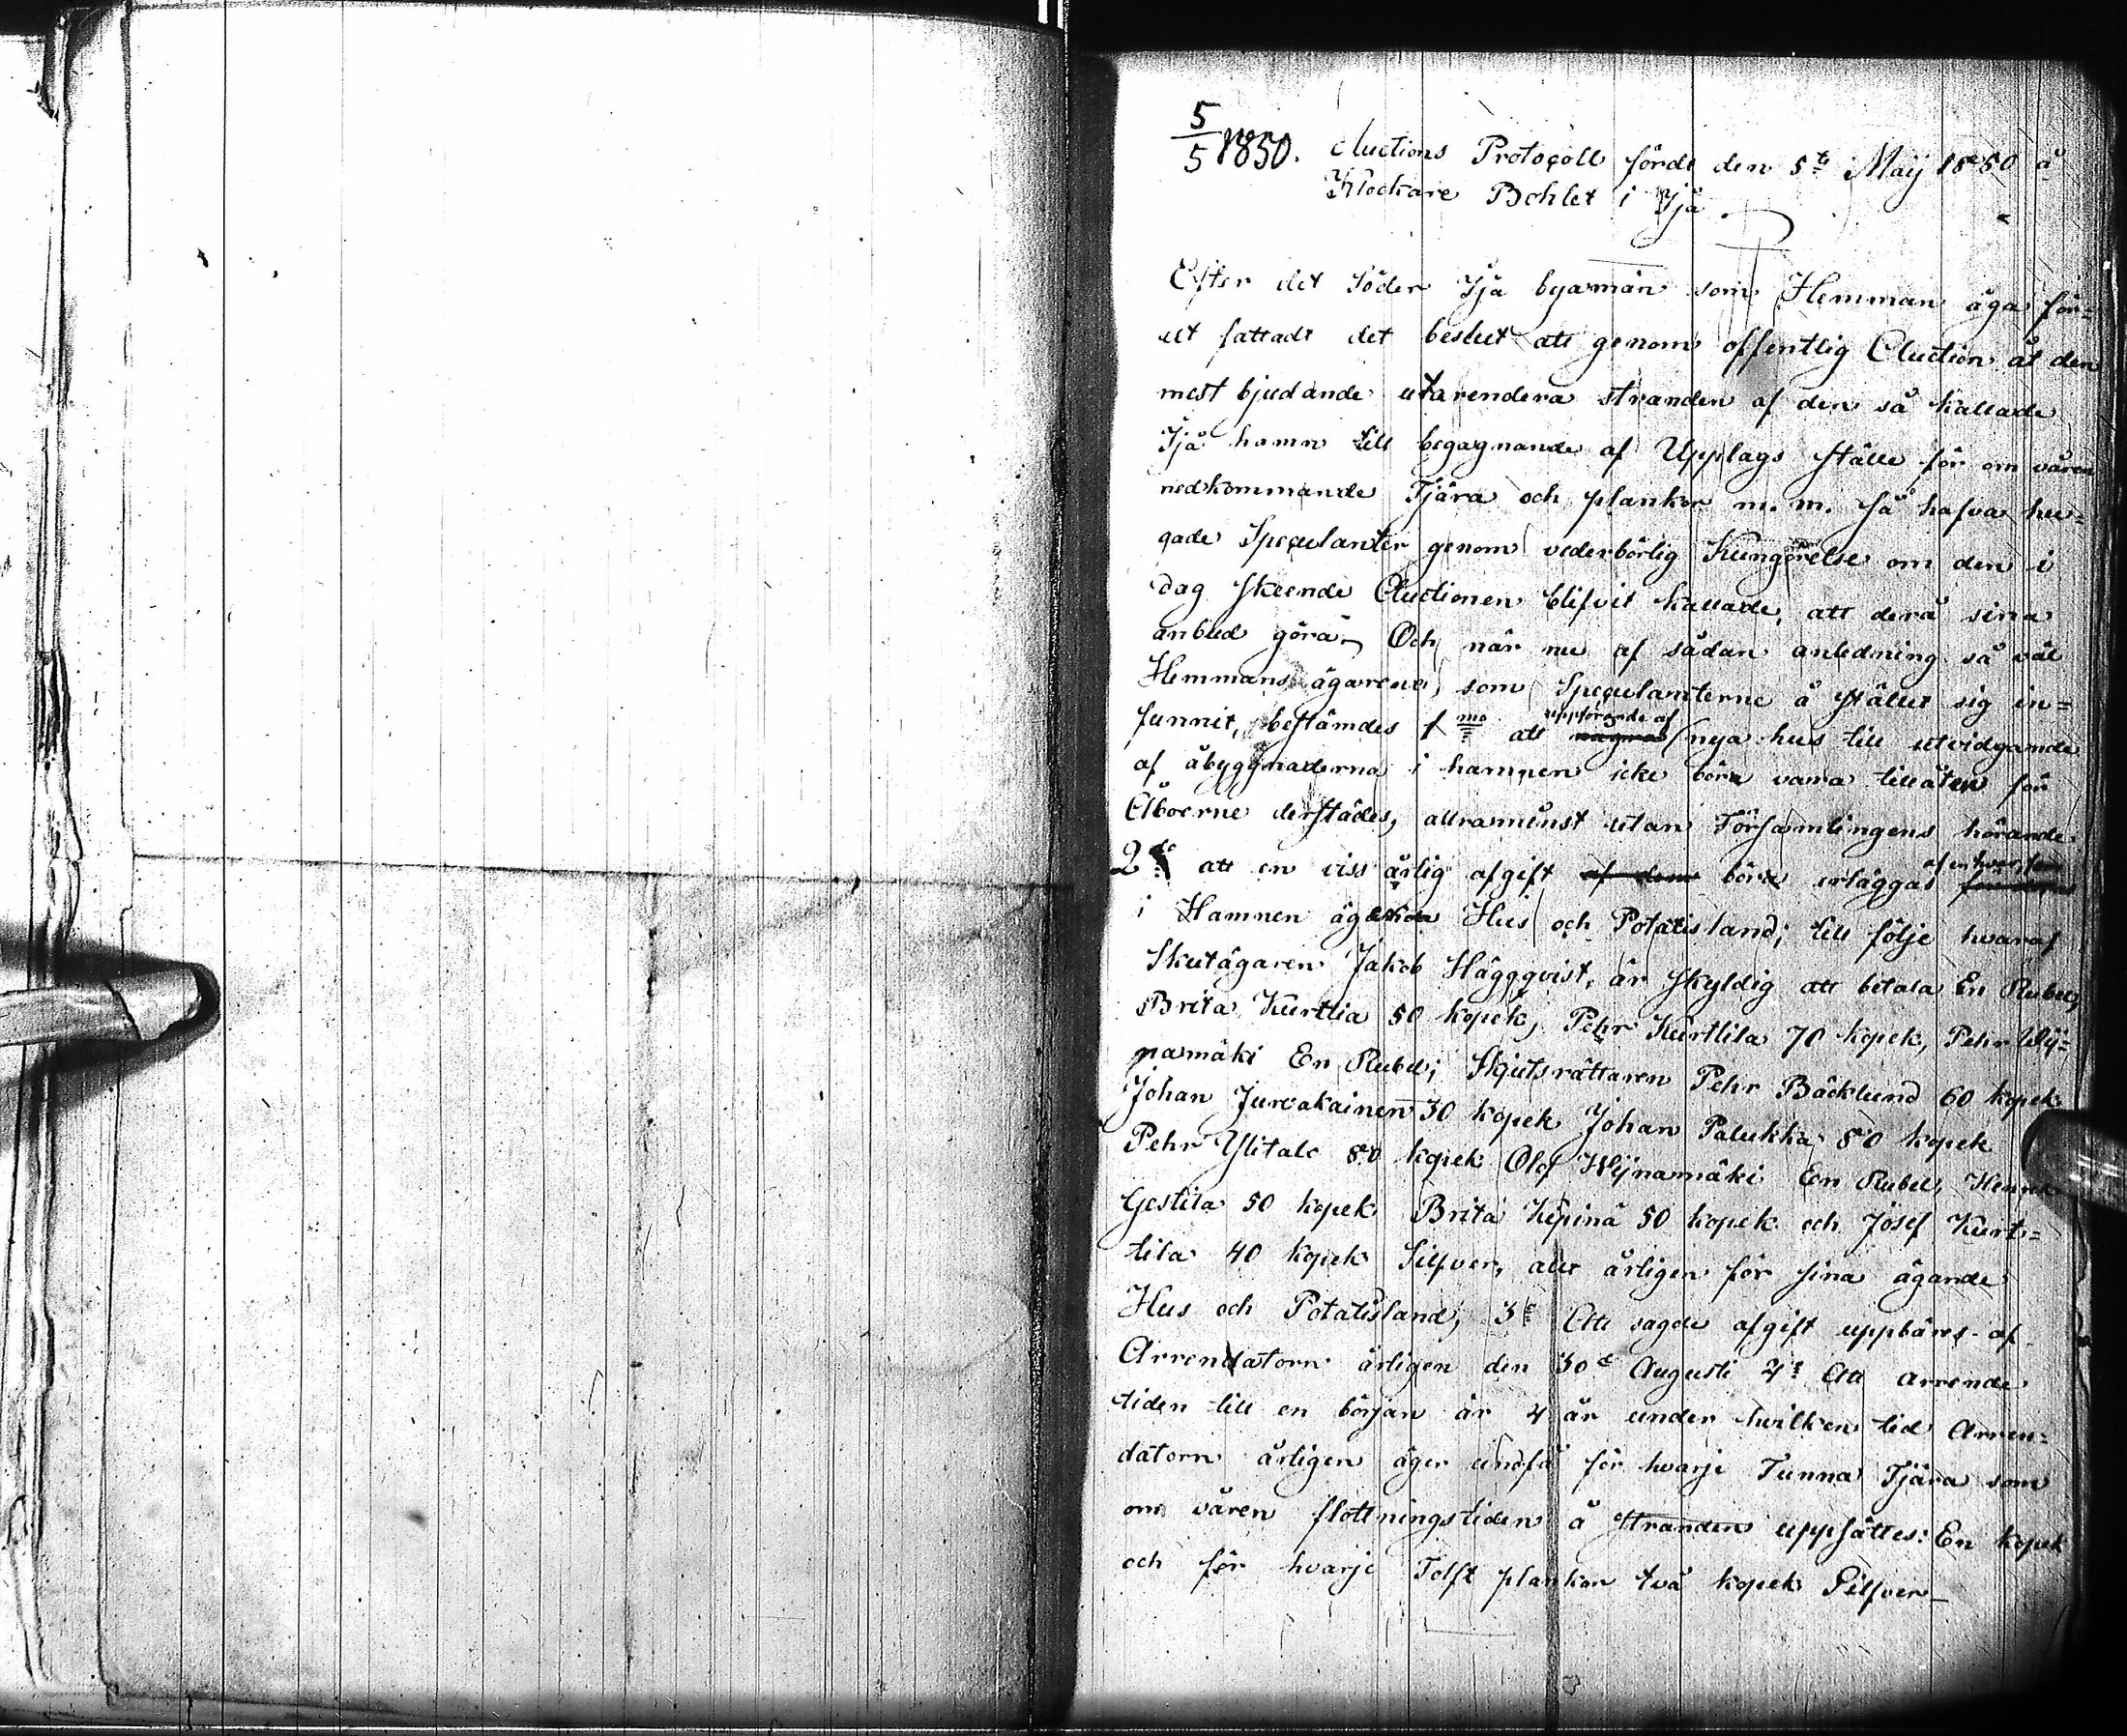 5/5 1850. Auctions Protocoll fördt den 5te Maij 1850 å
Klockare Bohlet i Ijå.
Efter det Söder Ijå byamän som Hemman äga för=
ut fattadt det beslut att genom offentlig Auction åt den
mest bjudande utarendera stranden af den så kallade
Ijå hamn till begagnande af Upplags ställe för om våren
nedkommande Tjära och plankor m. m. Så hafva hu=
gade Speculanter genom vederbörlig Kungörelse om den i
dag skeende Auctionen blifvit kallade, att derå sina
anbud göra. Och när nu af sådan anledning så väl
Hemmans ägarene, som Speculanterne å stället sig in=
funnit, bestämdes 1mo att uppförande af nya hus till utvidgande
af åbyggnaderna i hamnen icke böra vara tillåten för
Åboerne derstädes, allraminst utan Församlingens hörande
2do att en viss årlig afgift af dem böra erläggas af en hvar, som
i Hamnen äga Hus och Potatisland; till följe hvaraf
Skutägaren Jakob Häggqvist, är skyldig att betala En Rubel,
Brita Kurttia 50 kopek, Pehr Kurttila 70 kopek, Pehr Wij=
namäki En Rubel; Skjutsrättaren Pehr Bäcklund 60 kopek
Johan Jurvakainen 30 kopek Johan Palukka 80 kopek
Pehr Ylitalo 80 kopek Olof Wijnamäki En Rubel, Henrik
Gestila 50 kopek Brita Kepinä 50 kopek och Josef Kurt=
tila 40 kopek Silfver, allt årligen för sina ägande
Hus och Potatisland, 3o Att sagde afgift uppbäres af
Arrendatorn årligen den 30de Augusti 4o Att arrende
tiden till en början är 4 år under hvilken tid Arren=
datorn årligen äger undfå för hvarje Tunna Tjära som
om våren flottningstiden å stranden uppsättes: En kopek
och för hvarje Tolft plankor två kopek Silfver